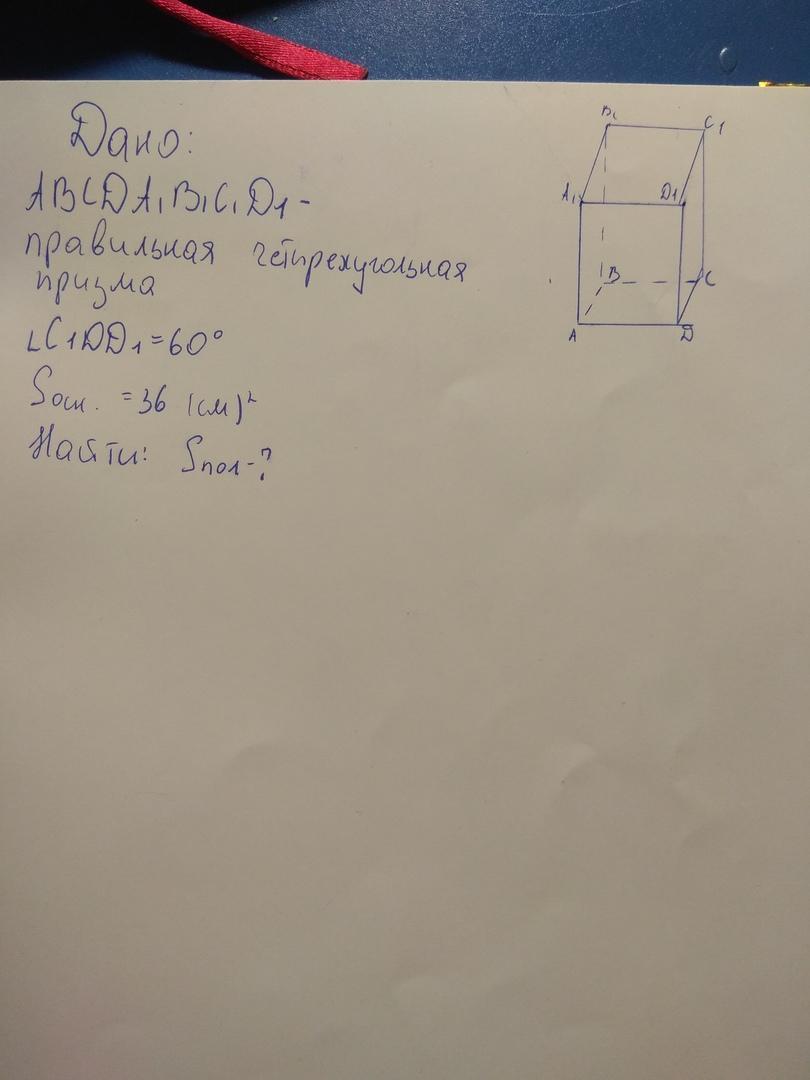 Дано:
ABCDA₁B₁C₁D₁ -
правильная четирехугольная
призма
∟C₁DD₁ = 60°
Sосн. = 36 (см)²
Найти: Sпол-?
B₁
C1
A₁
D1
B
C
A
D